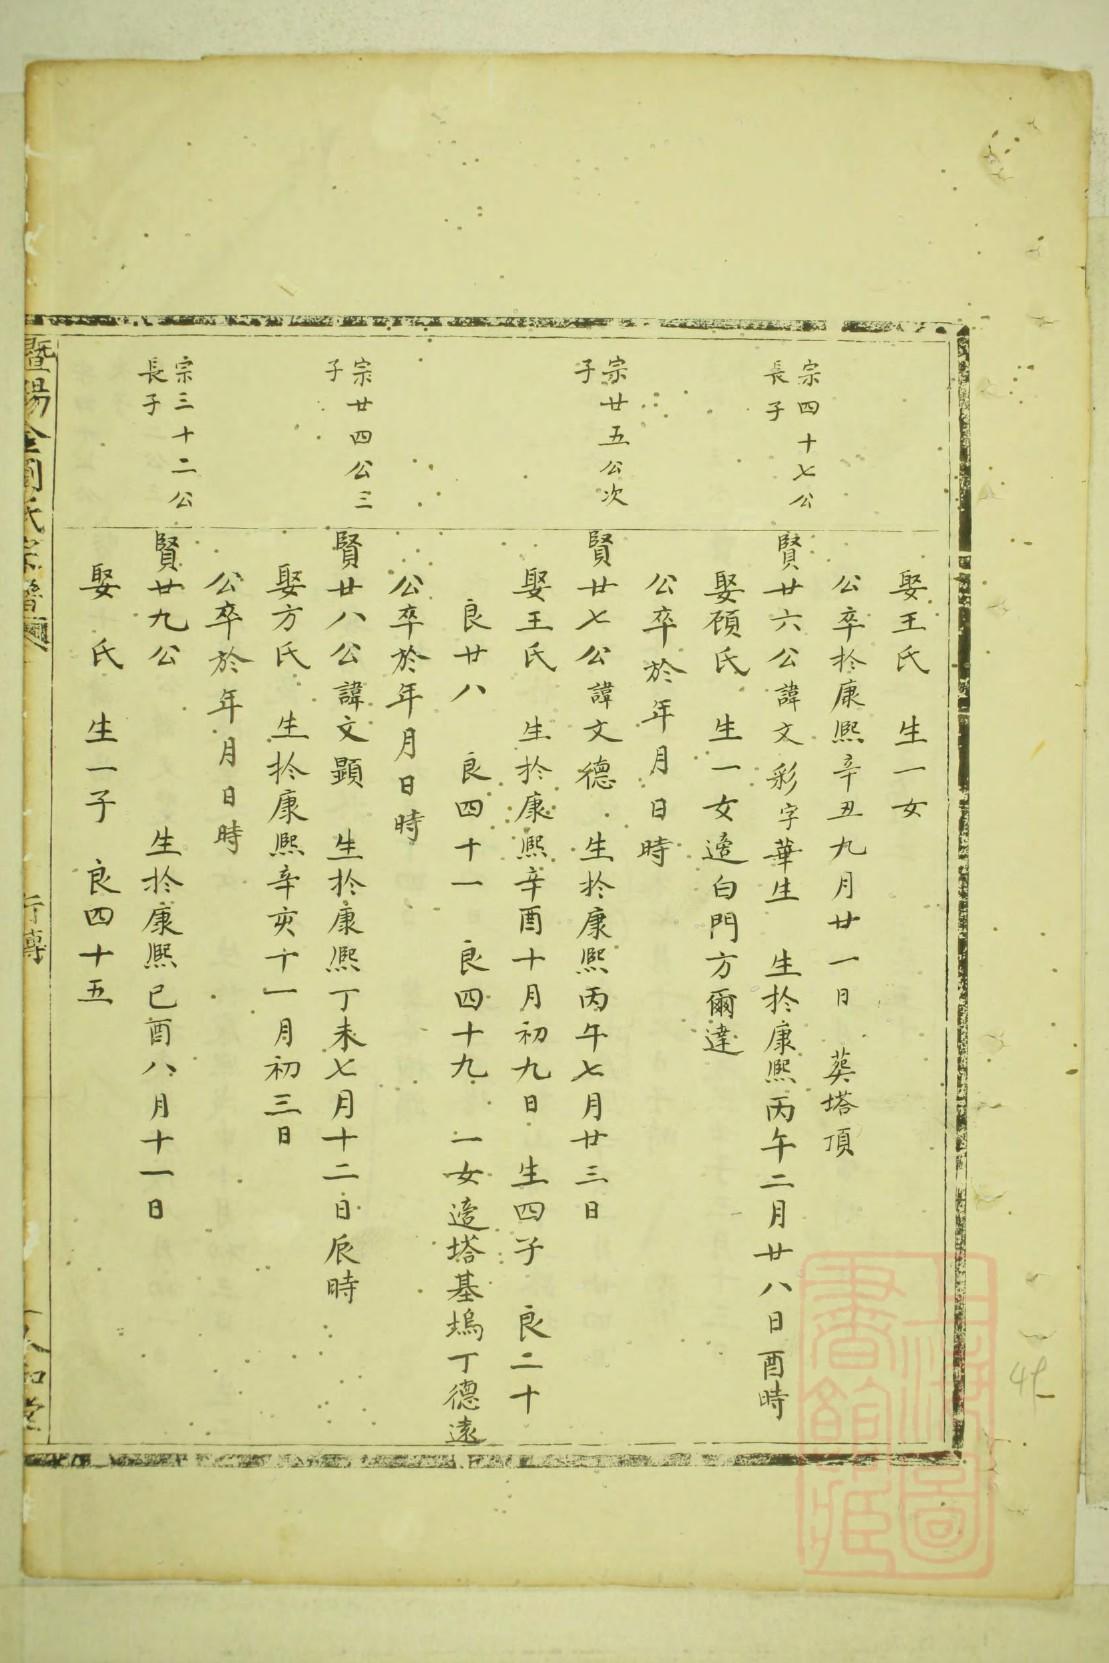 娶王氏　生一女
公卒於康熈辛丑九月廿一日　葬塔頂
宗四十七公
長子
賢廿六公諱文彩字華生　生於康熈丙午二月廿八日酉時
娶顧氏　生一女適白門方爾達
公卒於年月日時
宗廿五公次
子
賢廿七公諱文德　生於康熈丙午七月廿三日
娶王氏　生於康熈辛酉十月初九日　生四子　良二十
良廿八　良四十一　良四十九　一女適塔基塢丁德遠
公卒於年月日時
宗廿四公三
子
賢廿八公諱文顕　生於康熈丁未七月十二日辰時
娶方氏　生於康熈辛亥十一月初三日
公卒於年月日時
宗三十二公
長子
賢廿九公　生於康熈己酉八月十一日
娶　氏　生一子　良四十五
暨陽金氏宗譜
行傳
人和堂
上海圖
書館藏